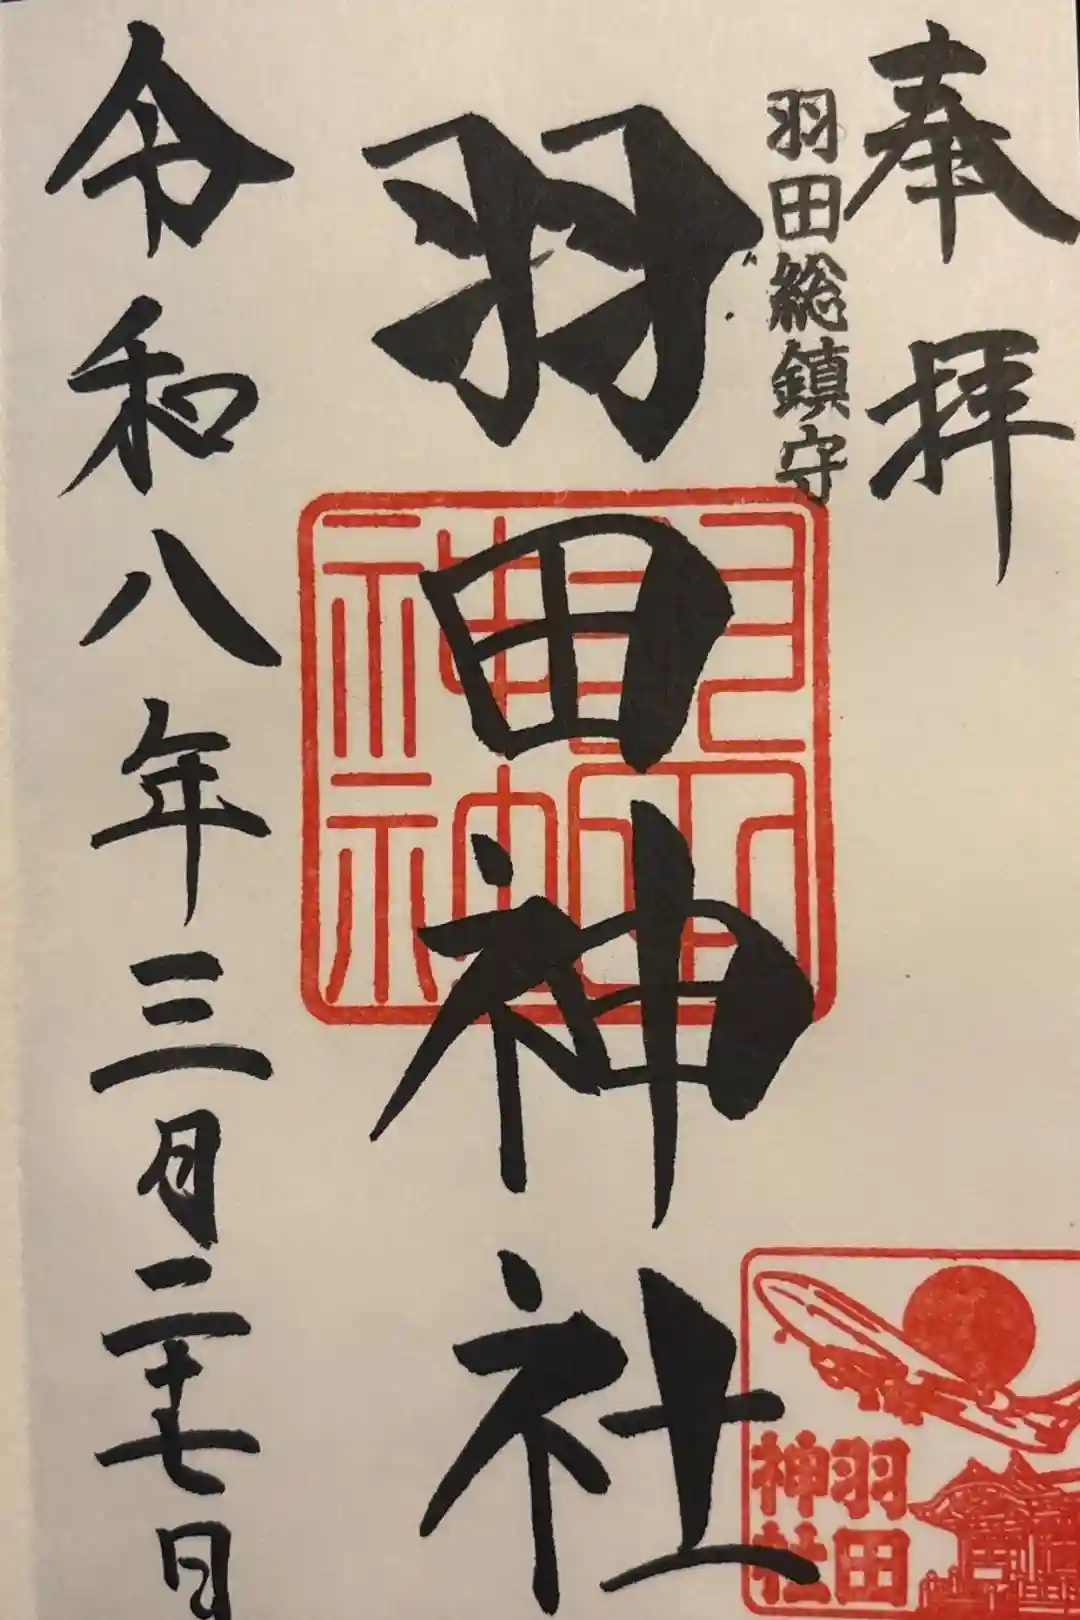 奉拝
羽田総鎮守
羽田神社
令和八年三月二十七日
羽田神社
羽田
神社